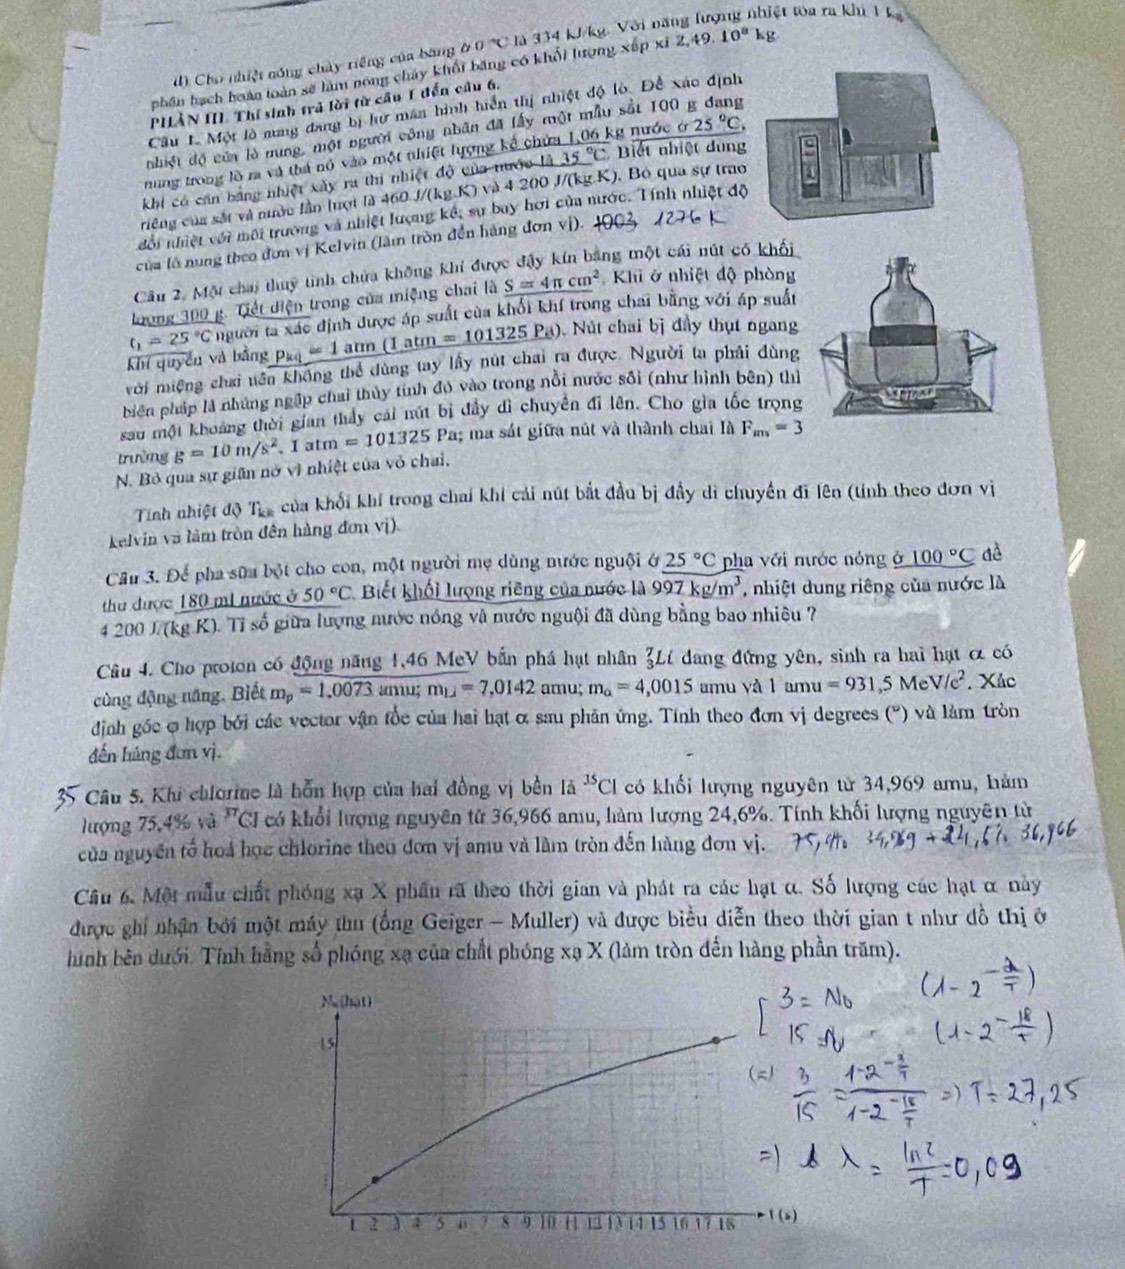 d) Cho nhiệt nóng chảy riêng của băng ở 0 °C là 334 kJ/kg. Với năng lượng nhiệt tỏa ra khi 1 kg
phân hạch hoàn toàn sẽ làm nóng chảy khối băng có khối lượng xấp xỉ 2,49. 10⁸ kg.
PHẦN III. Thí sinh trả lời từ câu 1 đến câu 6.
Câu 1. Một lò nung đang bị hư màn hình hiển thị nhiệt độ lò. Để xác định
nhiệt độ của lò nung, một người công nhân đã lấy một mẫu sắt 100 g đang
nung trong lò ra và thả nó vào một nhiệt lượng kế chứa 1,06 kg nước ở 25 °C,
khi có cân bằng nhiệt xảy ra thì nhiệt độ của nước là 35 °C. Biết nhiệt dung
riêng của sắt và nước lần lượt là 460 J/(kg.K) và 4 200 J/(kg.K). Bỏ qua sự trao
đổi nhiệt với môi trường và nhiệt lượng kế; sự bay hơi của nước. Tính nhiệt độ
của lò nung theo đơn vị Kelvin (làm tròn đến hàng đơn vị). 1003 1276 K
Câu 2. Một chai thuỷ tinh chứa không khí được đậy kín bằng một cái nút có khối
lượng 300 g. Tiết diện trong của miệng chai là S = 4π cm². Khi ở nhiệt độ phòng
t₁ = 25 °C người ta xác định được áp suất của khối khí trong chai bằng với áp suất
khí quyển và bằng Pkq = 1 atm (1 atm = 101325 Pa). Nút chai bị đẩy thụt ngang
với miệng chai nên không thể dùng tay lấy nút chai ra được. Người ta phải dùng
biện pháp là nhúng ngập chai thủy tinh đó vào trong nồi nước sôi (như hình bên) thì
sau một khoảng thời gian thấy cái nút bị đẩy di chuyển đi lên. Cho gia tốc trọng
trường g = 10 m/s². 1 atm = 101325 Pa; ma sát giữa nút và thành chai là Fms = 3
N. Bỏ qua sự giãn nở vì nhiệt của vỏ chai.
Tính nhiệt độ Tkk của khối khí trong chai khi cái nút bắt đầu bị đẩy di chuyển đi lên (tính theo đơn vị
kelvin và làm tròn đến hàng đơn vị).
Câu 3. Để pha sữa bột cho con, một người mẹ dùng nước nguội ở 25 °C pha với nước nóng ở 100 °C để
thu được 180 ml nước ở 50 °C. Biết khối lượng riêng của nước là 997 kg/m³, nhiệt dung riêng của nước là
4 200 J/(kg.K). Tỉ số giữa lượng nước nóng và nước nguội đã dùng bằng bao nhiêu ?
Câu 4. Cho proton có động năng 1,46 MeV bắn phá hạt nhân ⁷₃Li đang đứng yên, sinh ra hai hạt α có
cùng động năng. Biết mp = 1,0073 amu; mLi = 7,0142 amu; mα = 4,0015 amu và 1 amu = 931,5 MeV/c². Xác
định góc φ hợp bởi các vector vận tốc của hai hạt α sau phản ứng. Tính theo đơn vị degrees (°) và làm tròn
đến hàng đơn vị.
35 Câu 5. Khí chlorine là hỗn hợp của hai đồng vị bền là ³⁵Cl có khối lượng nguyên tử 34,969 amu, hàm
lượng 75,4% và ³⁷Cl có khối lượng nguyên tử 36,966 amu, hàm lượng 24,6%. Tính khối lượng nguyên tử
của nguyên tố hoá học chlorine theo đơn vị amu và làm tròn đến hàng đơn vị. 75,4% 34,969 + 24,6% 36,966
Câu 6. Một mẫu chất phóng xạ X phân rã theo thời gian và phát ra các hạt α. Số lượng các hạt α này
được ghi nhận bởi một máy thu (ống Geiger – Muller) và được biểu diễn theo thời gian t như đồ thị ở
hình bên dưới. Tính hằng số phóng xạ của chất phóng xạ X (làm tròn đến hàng phần trăm).
Nα (hạt)
15
1 2 3 4 5 6 7 8 9 10 11 12 13 14 15 16 17 18 t (s)
3 = N₀ (1 - 2^(-2/T))
15 = N (1 - 2^(-18/T))
(=) 3/15 = (1-2^(-2/T))/(1-2^(-18/T)) =) T = 27,25
=) λ = ln2/T = 0,09